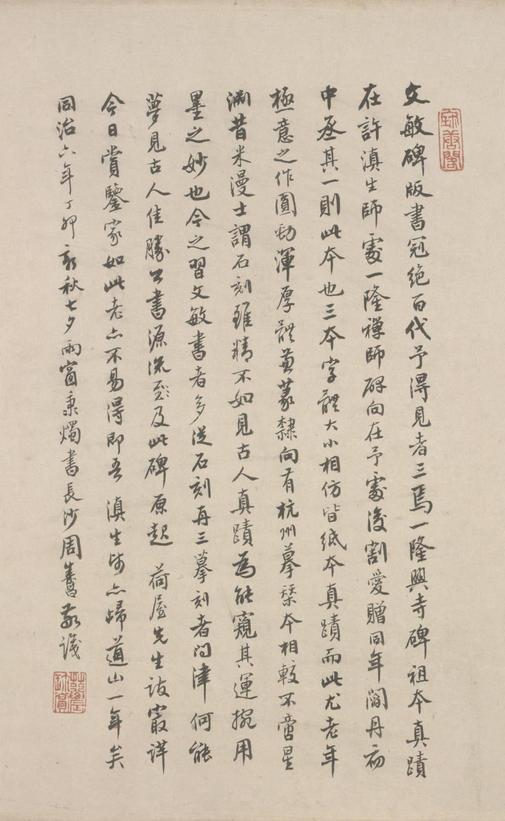 文敏碑版書冠絕百代予得見者三焉一隆興寺碑祖本真蹟
在許滇生師處一隆禪師碑向在予處後割愛贈同年閻丹初
中丞其一則此本也三本字體大小相仿皆紙本真蹟而此尤老年
極意之作圓勁渾厚體兼篆隸向有杭州摹槧本相較不啻星
淵昔米漫士謂石刻雖精不如見古人真蹟為能窺其運捥用
墨之妙也今之習文敏書者多從石刻再三摹刻者問津何能
夢見古人佳勝書源流及此碑原起荷屋先生詼最詳
今日賞鑒家如此老亦不易得即吾滇生師亦歸道山一年矣
同治六年丁卯新秋七夕雨窗秉燭書長沙周壽昌識